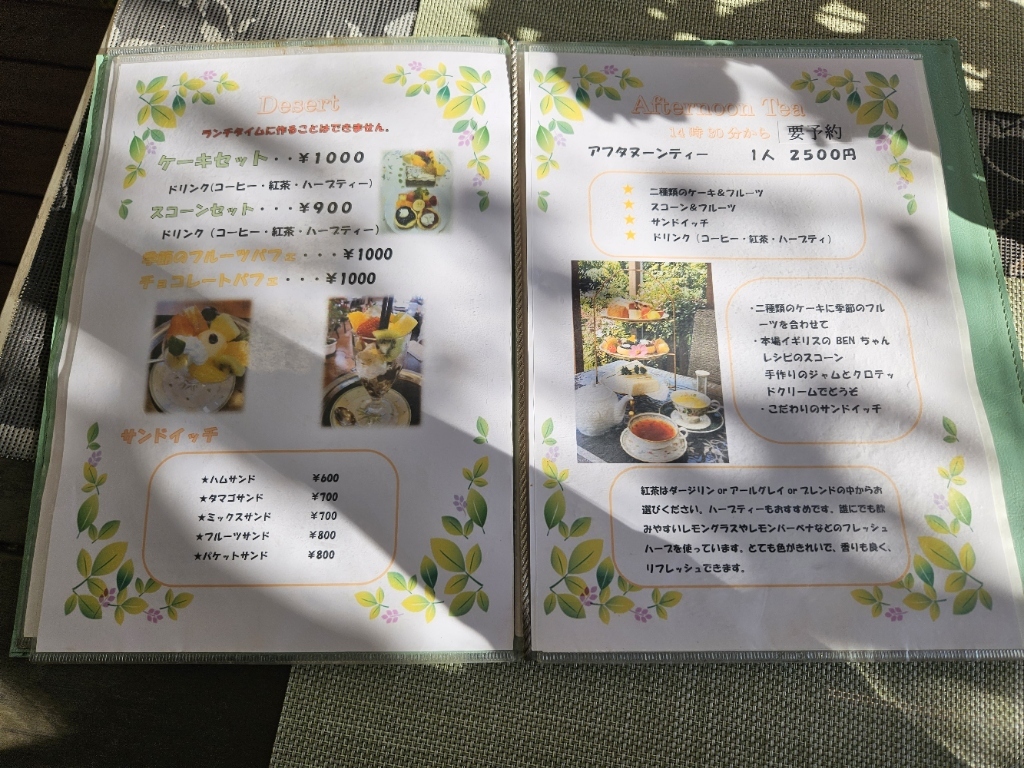 Desert
ランチタイムに作ることはできません。
ケーキセット・・￥1000
ドリンク(コーヒー・紅茶・ハーブティー)
スコーンセット・・・￥900
ドリンク (コーヒー・紅茶・ハーブティー)
季節のフルーツパフェ・・・￥1000
チョコレートパフェ・・・￥1000
サンドイッチ
★ハムサンド ￥600
★タマゴサンド ￥700
★ミックスサンド ￥700
★フルーツサンド ￥800
★バケットサンド ￥800
Afternoon Tea
14時30分から 要予約
アフタヌーンティー 1人 2500円
★ 二種類のケーキ&フルーツ
★ スコーン&フルーツ
★ サンドイッチ
★ ドリンク (コーヒー・紅茶・ハーブティ)
・二種類のケーキに季節のフル
ーツを合わせて
・本場イギリスの BEN ちゃん
レシピのスコーン
手作りのジャムとクロテッ
ドクリームでどうぞ
・こだわりのサンドイッチ
紅茶はダージリン or アールグレイ or ブレンドの中からお
選びください。ハーブティーもおすすめです。誰にでも飲
みやすいレモングラスやレモンバーベナなどのフレッシュ
ハーブを使っています。とても色がきれいで、香りも良く、
リフレッシュできます。